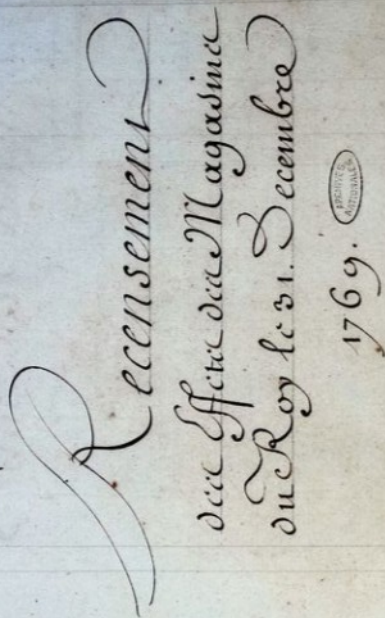 Recensement
des Effets des Magasins
du Roy le 31. Decembre
1769.
ARCHIVES
NATIONALES